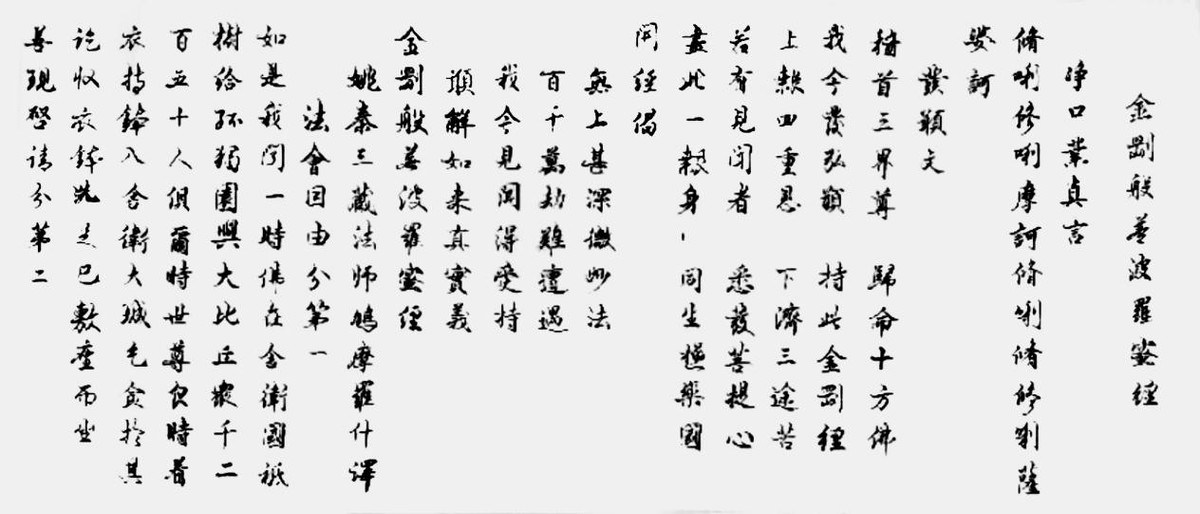 金剛般若波羅蜜經
淨口業真言
修唎修唎摩訶修唎修修唎薩
婆訶
發願文
稽首三界尊 歸命十方佛
我今發弘願 持此金剛經
上報四重恩 下濟三途苦
若有見聞者 悉發菩提心
盡此一報身 同生極樂國
開經偈
無上甚深微妙法
百千萬劫難遭遇
我今見聞得受持
願解如來真實義
金剛般若波羅蜜經
姚秦三藏法師鳩摩羅什譯
法會因由分第一
如是我聞一時佛在舍衛國祇
樹給孤獨園與大比丘眾千二
百五十人俱爾時世尊食時著
衣持鉢入舍衛大城乞食於其
訖收衣鉢洗足已敷座而坐
善現啓請分第二